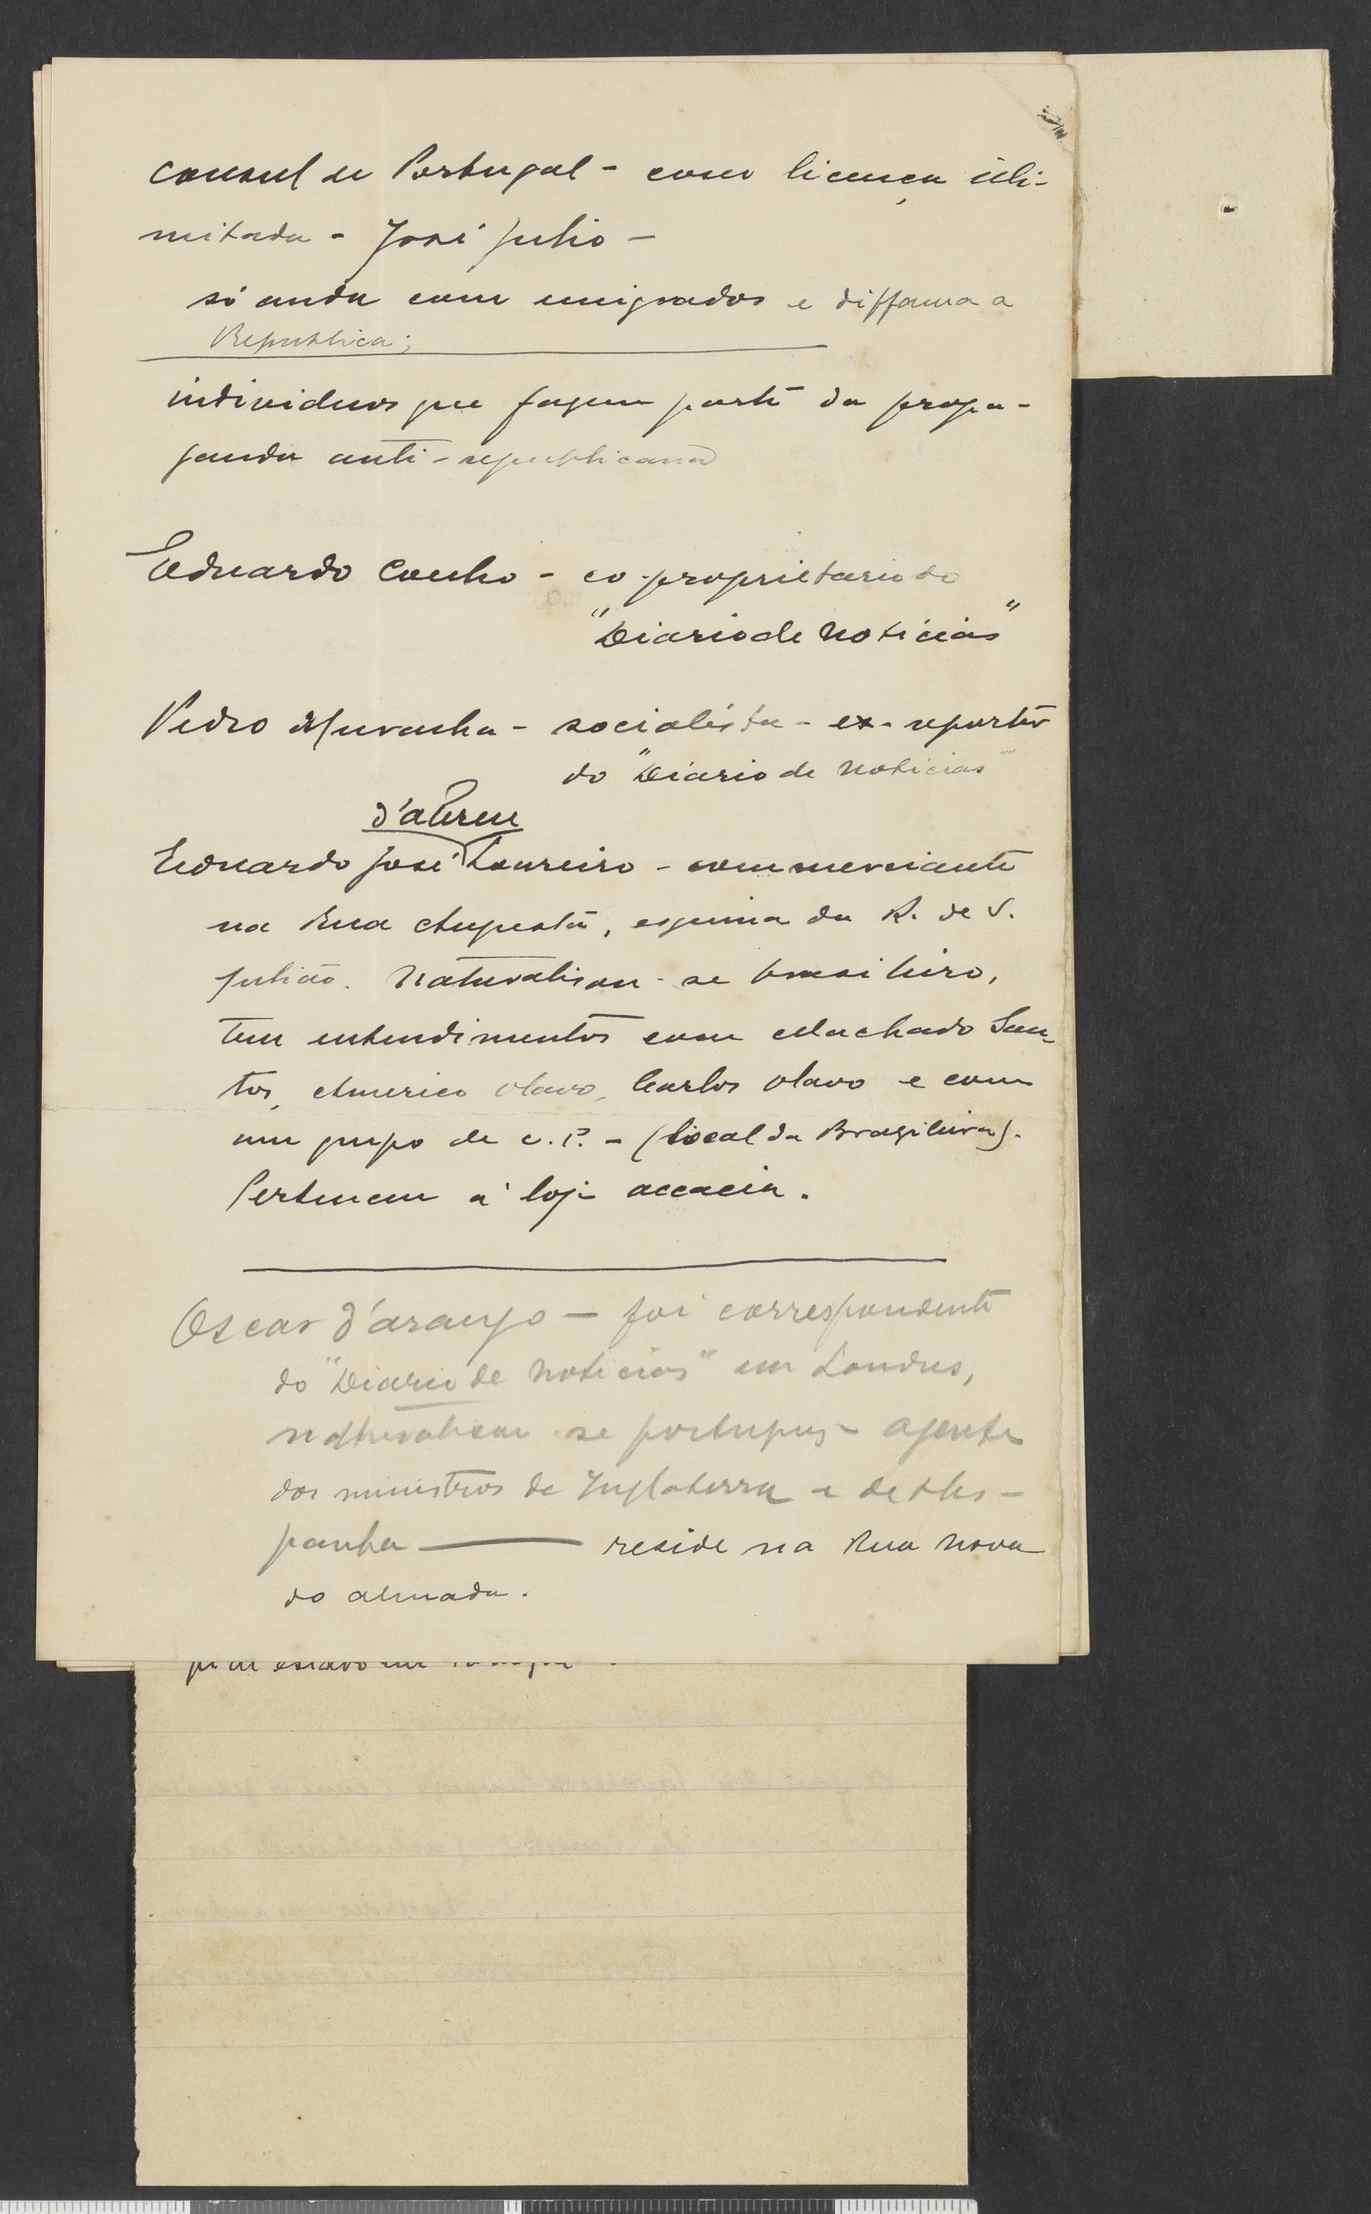 consul de Portugal - com licença illi-
mitada - José Julio -
só anda com emigrados e diffama a
Republica;
individuos que fazem parte da propa-
ganda anti-republicana
Eduardo Coelho - co-proprietario do
"Diario de Noticias"
Pedro Muralha - socialista - ex-reporter
do "Diario de Noticias"
d'Abreu
Eduardo José Loureiro - commerciante
na Rua Augusta, esquina da R. de S.
Julião. Naturalisou-se brasileiro,
tem entendimentos com Machado San-
tos, Americo Olavo, Carlos Olavo e com
um grupo de c. P. - (local da Brazileira).
Pertencem á loja accacia.
Oscar d'Araujo - foi correspondente
do "Diario de Noticias" em Londres,
naturalisou-se portuguez - agente
dos ministros de Inglaterra e de Hes-
panha — reside na Rua Nova
do Almada.